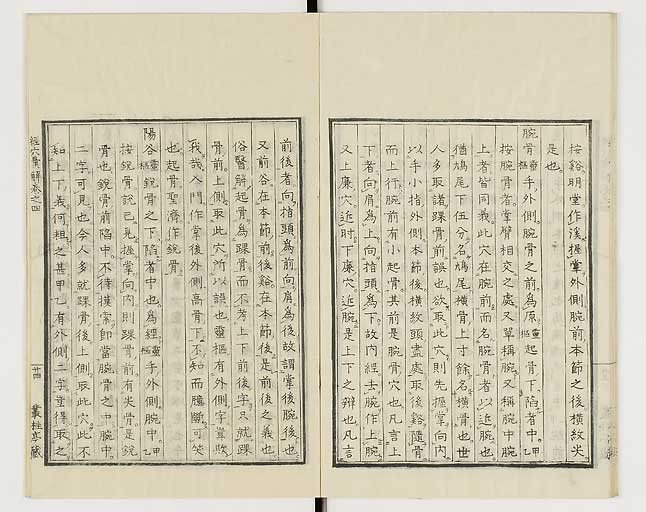 按谿明堂作溪握掌外側腕前本節之後橫紋尖
是也
腕骨靈樞手外側腕骨之前爲原靈樞起骨下陷者中甲
按腕骨者掌臂相交之處又單稱腕又稱腕中腕
上者皆同義此穴在腕前而名腕骨者以近腕也
猶鳩尾下伍分名鳩尾橫骨上寸餘名橫骨也世
人多取諸踝骨前誤也欲取此穴則先握掌向內
以手小指外側本節後橫紋頭盡處取後谿隨骨
而上行腕前有小起骨其前是腕骨穴也凡言上
下者向肩爲上向指頭爲下故內經去腕作上腕
又上廉穴近肘下廉穴近腕是上下之辯也凡言
前後者向指頭爲前向肩爲後故謂掌後腕後也
又前谷在本節前後谿在本節後是前後之義也
俗醫解起骨爲踝骨而不考上下前後字只就踝
骨前上側取此穴所以誤也靈樞有外側字豈欺
我哉入門作掌後外側高骨下不知而臆斷可笑
也起骨聖濟作銳骨
陽谷靈樞銳骨之下陷者中也爲經靈樞手外側腕中甲乙
按銳骨說已見握掌向內則踝骨前有尖骨是銳
骨也銳骨前陷中不待摸索卽當腕骨之中腕中
二字可見也今人多就踝骨後上側取此穴此不
知上下義何粗之甚甲乙有外側二字豈得取之
經穴彙解卷之四
廿四
叢桂亭藏